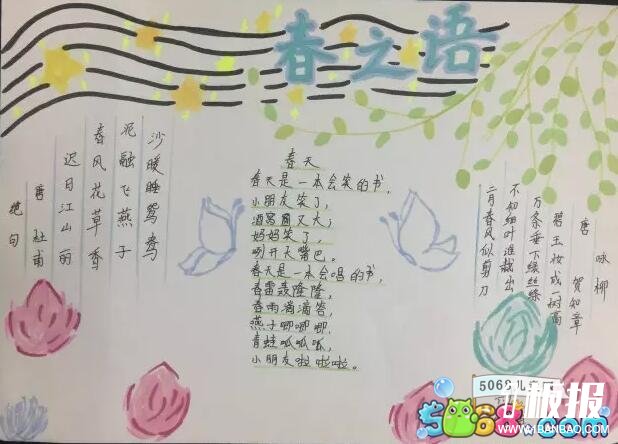 春之语
绝句
唐 杜甫
迟日江山丽
春风花草香
泥融飞燕子
沙暖睡鸳鸯
春天
春天是一本会笑的书，
小朋友笑了，
酒窝圆又大；
妈妈笑了，
咧开大嘴巴。
春天是一本会唱的书，
春雷轰隆隆，
春雨滴滴答，
燕子唧唧唧，
青蛙呱呱呱，
小朋友啦啦啦。
咏柳
唐 贺知章
碧玉妆成一树高
万条垂下绿丝绦
不知细叶谁裁出
二月春风似剪刀
5068儿
板报
WWW.1BANBAO.COM